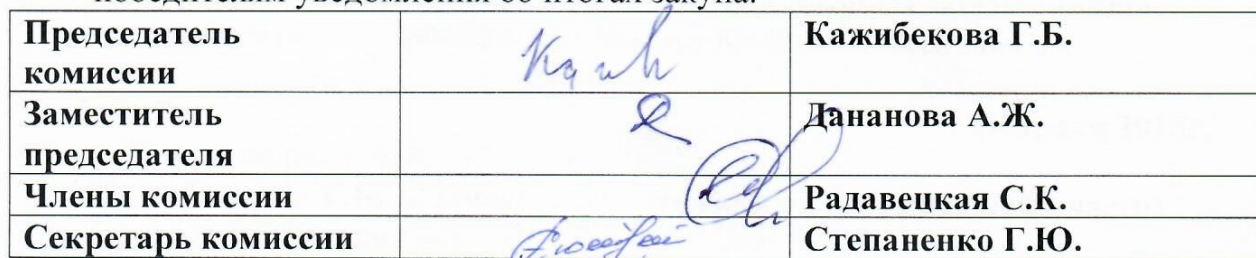 победителям уведомления об итогах закупа.
Председатель комиссии Кажибекова Г.Б.
Заместитель председателя Дананова А.Ж.
Члены комиссии Радавецкая С.К.
Секретарь комиссии Степаненко Г.Ю.